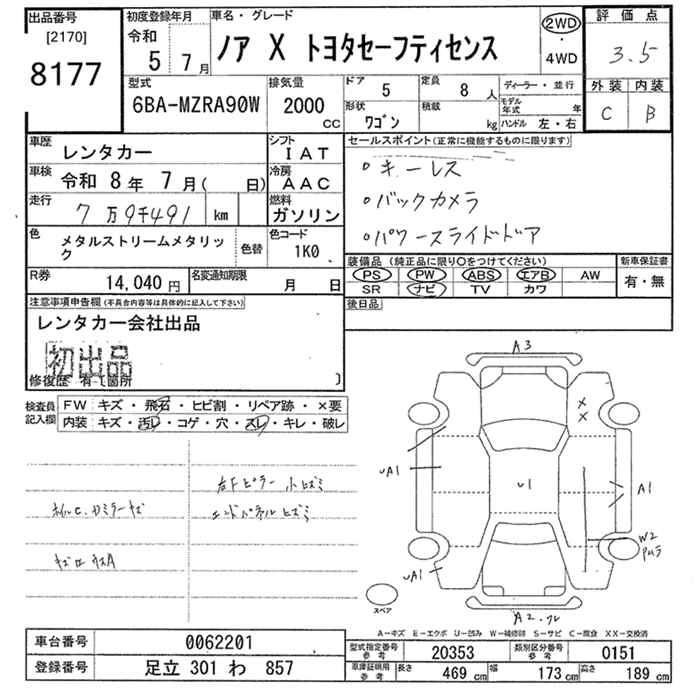 出品番号
[2170]
8177
初度登録年月
令和
5 年 7 月
車名 ・ グレード
ノア X トヨタセーフティセンス
2WD
・
4WD
評価点
3.5
外装 内装
C B
型式
6BA-MZRA90W
排気量
2000
CC
ドア
5
定員
8 人
形状
ワゴン
積載
kg
ディーラー ・ 並行
モデル年式 年
ハンドル 左 ・ 右
車歴
レンタカー
シフト
IAT
車検
令和 8 年 7 月 ( 日)
冷房
AAC
走行
7万9千491 km
燃料
ガソリン
色
メタルストリームメタリック
色替
色コード
1K0
R券
14,040 円
名変通知期限
月 日
セールスポイント(正常に機能するものに限ります)
・キーレス
・バックカメラ
・パワースライドドア
装備品 (純正品に限り○をつけてください)
PS PW ABS エアB AW
SR ナビ TV カワ
新車保証書
有 ・ 無
後日品
注意事項申告欄(不具合内容等は具体的に記入して下さい)
レンタカー会社出品
初出品
修復歴 有-[箇所 )
検査員記入欄
FW キズ ・ 飛石 ・ ヒビ割 ・ リペア跡 ・ ×要
内装 キズ ・ 汚レ ・ コゲ ・ 穴 ・ スレ ・ キレ ・ 破レ
右Fピラー小ヒズミ
エンドパネルヒズミ
A3
X
X
UA1
U1
A1
W2
UA1
スペア
A-キズ E-エクボ U-凹み W-補修跡 S-サビ C-腐食 XX-交換済
車台番号
0062201
登録番号
足立 301 わ 857
型式指定番号
参考
20353
類別区分番号
参考
0151
車庫証明用
参考
長さ
469 cm
幅
173 cm
高さ
189 cm